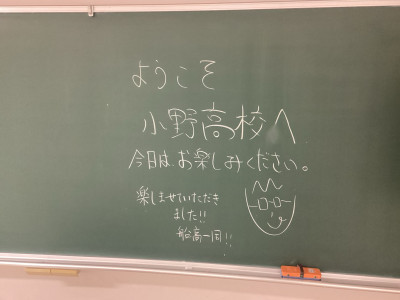 ようこそ
小野高校へ
今日はお楽しみください。
楽しませていただき
ました!!
船高一同!!